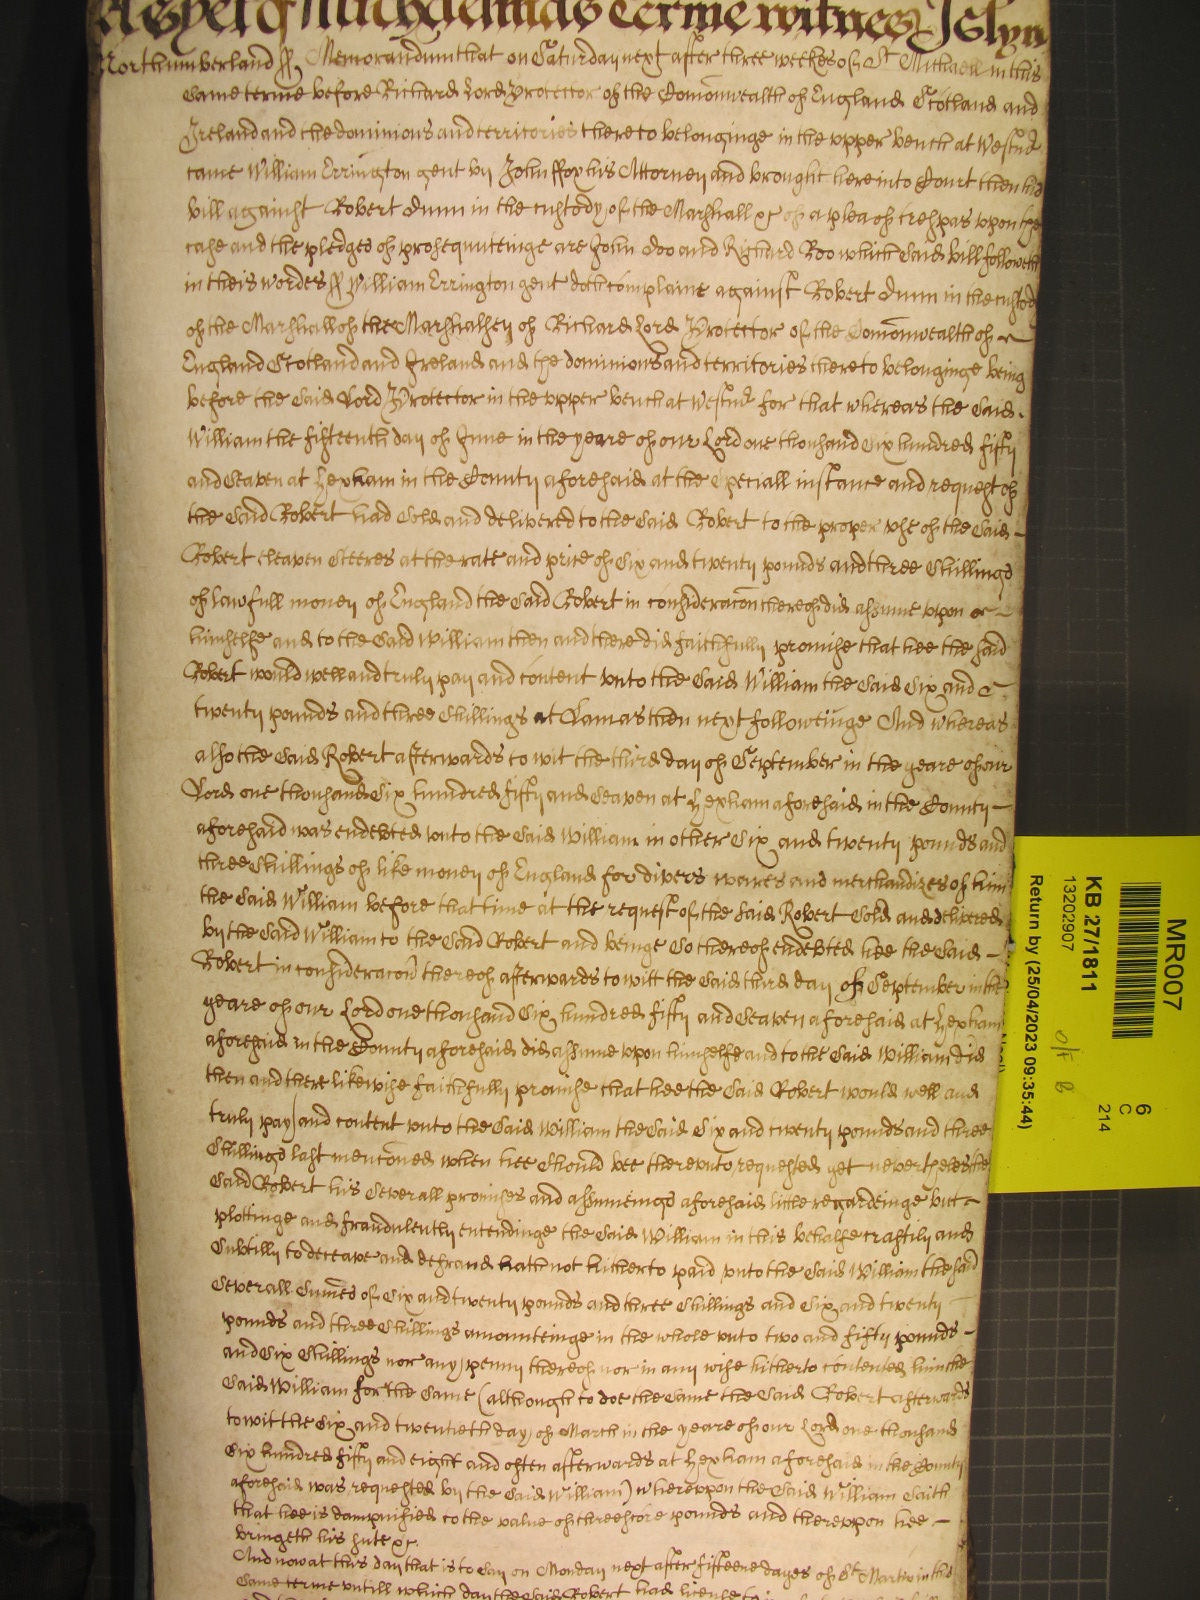 As yet of Michaelmas terme witnes J Glyn
Northumberland ss Memorandum that on Saturday next after three weekes of St Michaell in this
same terme before Richard Lord Protector of the Comonwealth of England Scotland and
Ireland and the dominions and territories thereto belonginge in the upper bench at Westmr
came William Errington gent by John ffox his Attorney and brought here into Court then his
bill against Robert Dunn in the custody of the Marshall &c of a plea of trespas upon the
case and the pledges of prosequuteinge are John Doo and Richard Roo which said bill followeth
in theis wordes ss William Errington gent doth complaine against Robert Dunn in the custody
of the Marshall of the Marshalsey of Richard Lord Protector of the Comonwealth of
England Scotland and Ireland and the dominions and territories thereto belonginge being
before the said Lord Protector in the upper bench at Westmr for that whereas the said
William the fifteenth day of June in the yeare of our Lord one thousand six hundred fifty
and seaven at Hexham in the County aforesaid at the speciall instance and request of
the said Robert had sold and delivered to the said Robert to the proper use of the said
Robert eleaven steeres at the rate and price of six and twenty pounds and three shillings
of lawfull money of England the said Robert in consideracon thereof did assume upon
himselfe and to the said William then and there did faithfully promise that hee the said
Robert would well and truly pay and content unto the said William the said six and
twenty pounds and three shillings at Lamas then next followeinge And whereas
also the said Robert afterwards to wit the third day of September in the yeare of our
Lord one thousand six hundred fifty and seaven at Hexham aforesaid in the County
aforesaid was endebted unto the said William in other six and twenty pounds and
three shillings of like money of England for divers wares and merchandizes of him
the said William before that time at the request of the said Robert sold and delivered
by the said William to the said Robert and beinge so thereof endebted hee the said
Robert in consideracon thereof afterwards to witt the said third day of September in the
yeare of our Lord one thousand six hundred fifty and seaven aforesaid at Hexham
aforesaid in the County aforesaid did assume upon himselfe and to the said William did
then and there likewise faithfully promise that hee the said Robert would well and
truly pay and content unto the said William the said six and twenty pounds and three
shillings last mencioned when hee should bee thereunto requested yet neverthelesse the
said Robert his severall promises and assumeings aforesaid little regardeinge but
plottinge and fraudulently entendinge the said William in this behalfe craftily and
subtilly to deceave and defraud hath not hitherto paid unto the said William the said
severall summes of six and twenty pounds and three shillings and six and twenty
pounds and three shillings amounteinge in the whole unto two and fifty pounds
and six shillings nor any penny thereof nor in any wise hitherto contented him the
said William for the same (although to doe the same the said Robert afterwards
to wit the six and twentieth day of March in the yeare of our Lord one thousand
six hundred fifty and eight and often afterwards at Hexham aforesaid in the County
aforesaid was requested by the said William) whereupon the said William saith
that hee is dampnified to the value of threescore pounds and thereupon hee
bringeth his sute &c
And now at this day that is to say on Monday next after fifteene dayes of St Martin in this
same terme untill which day the said Robert had licence to
MR007
KB 27/1811
13202907
Return by (25/04/2023 09:35:44)
6
C
214